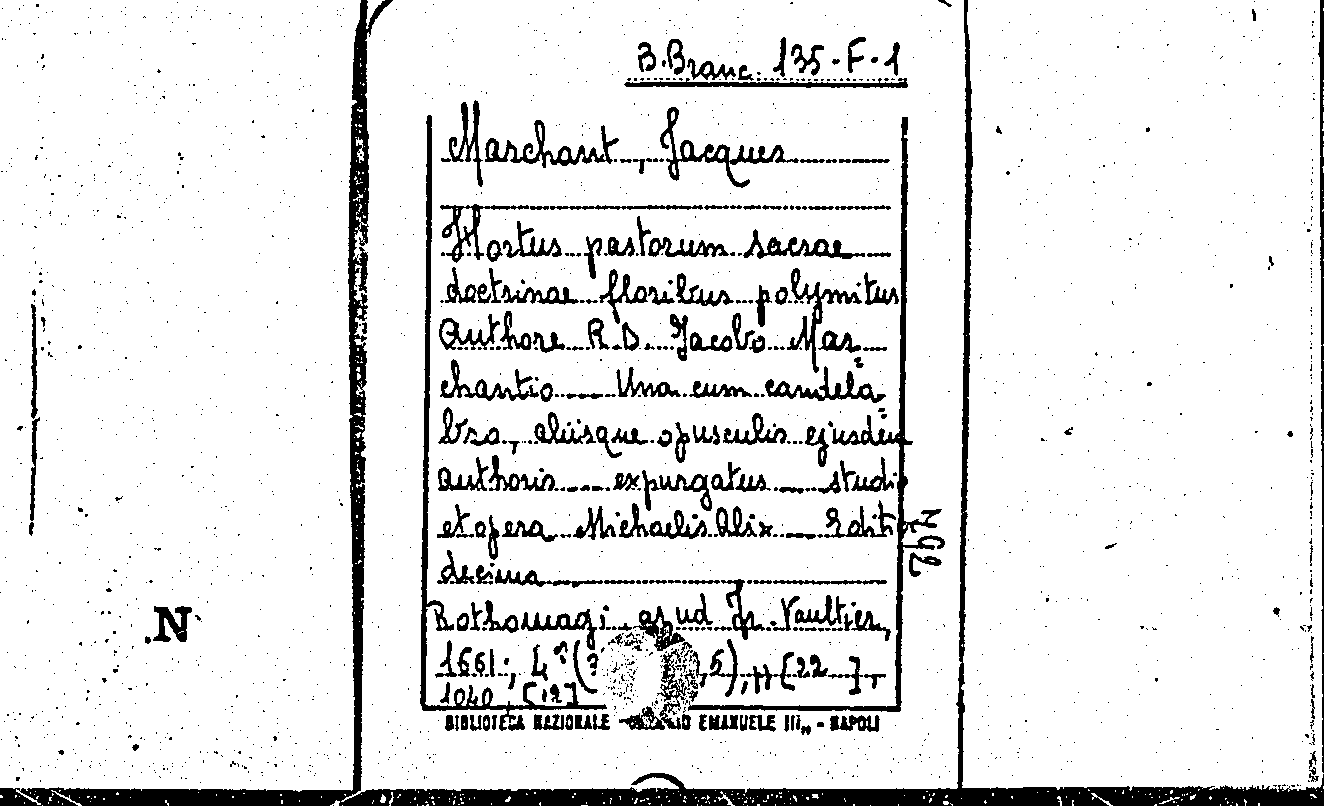 B.Branc. 135-F-1
Marchant, Jacques
Hortus pastorum sacrae
doctrinae floribus polymitus
Authore R.D. Jacobo Mar=
chantio... Una cum candela=
bro, aliisque opusculis ejusdem
authoris... expurgatus... studio
et opera Michaelis Alix... Editio
decima...
Rothomagi, apud Fr. Vaultier,
1661; 4° ,5), pp [22 ],
1040, [12]
BIBLIOTECA NAZIONALE EMANUELE III„ - NAPOLI
N